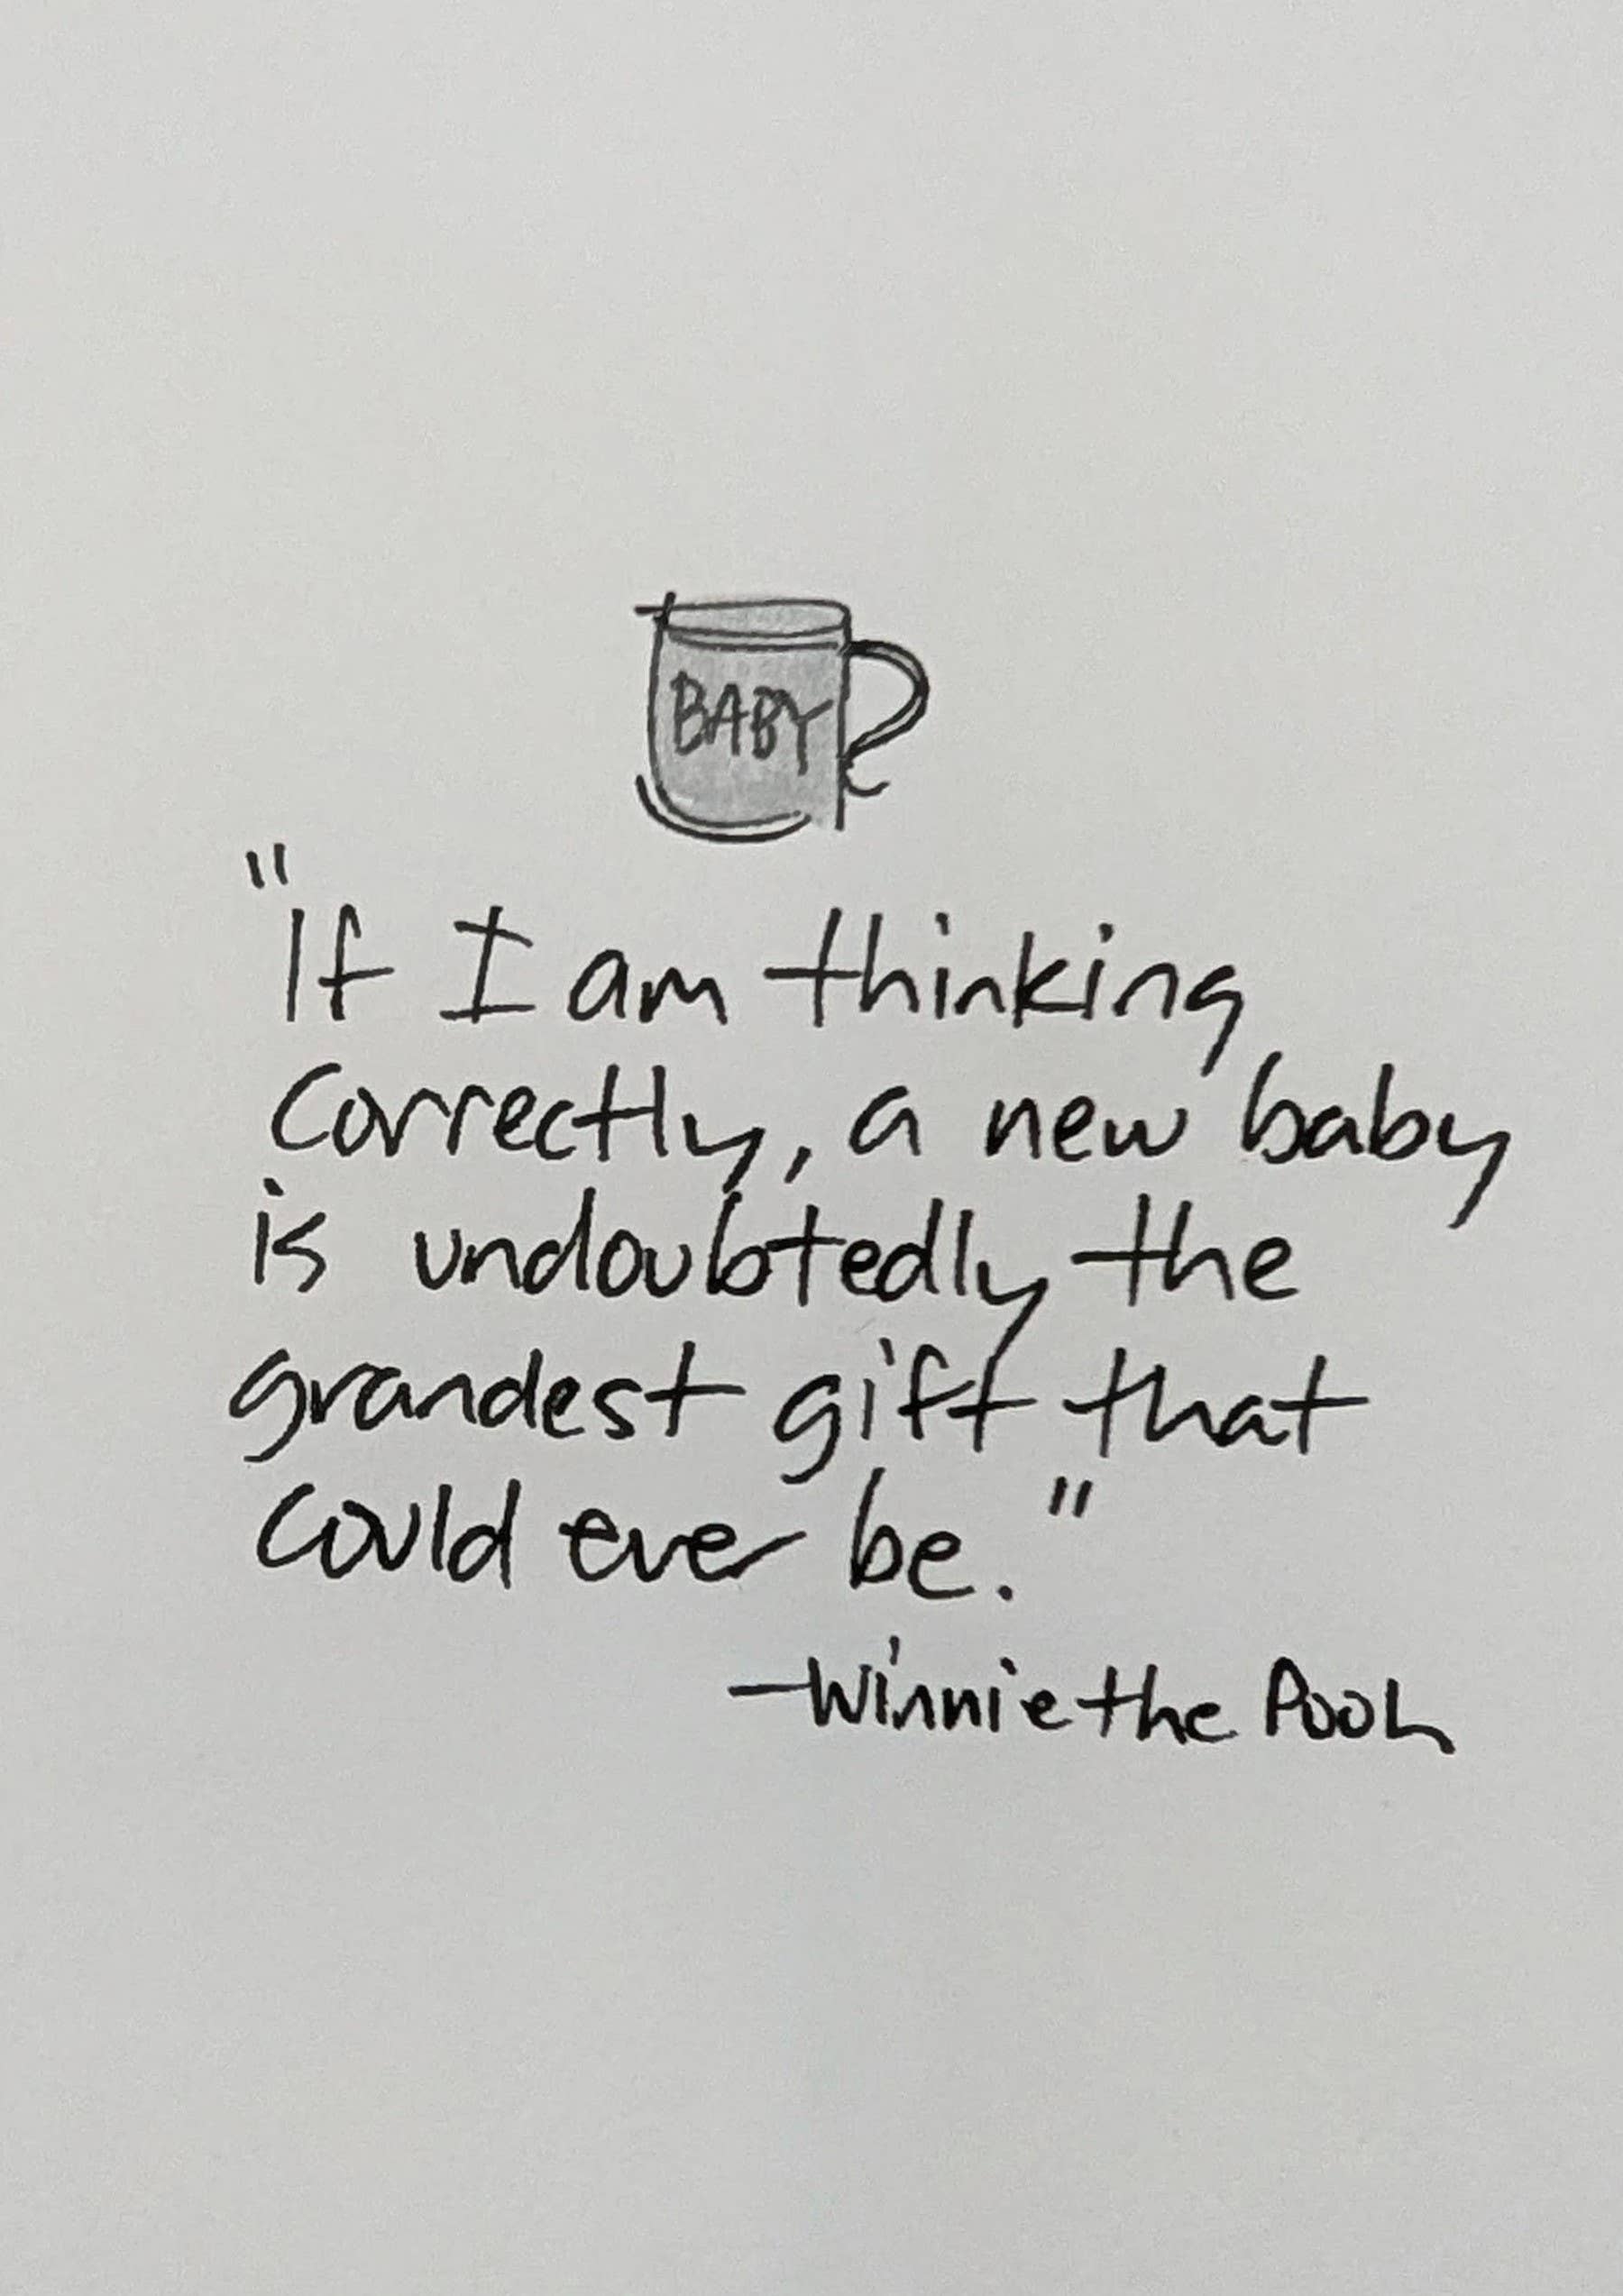 BABY
"If I am thinking
Correctly, a new baby
is undoubtedly the
grandest gift that
Could ever be."
-Winnie the Pooh